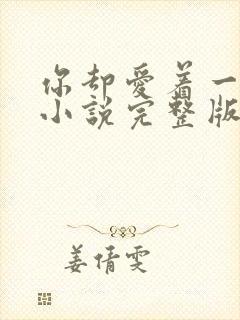 你却爱着一
小说完整版
姜倩雯